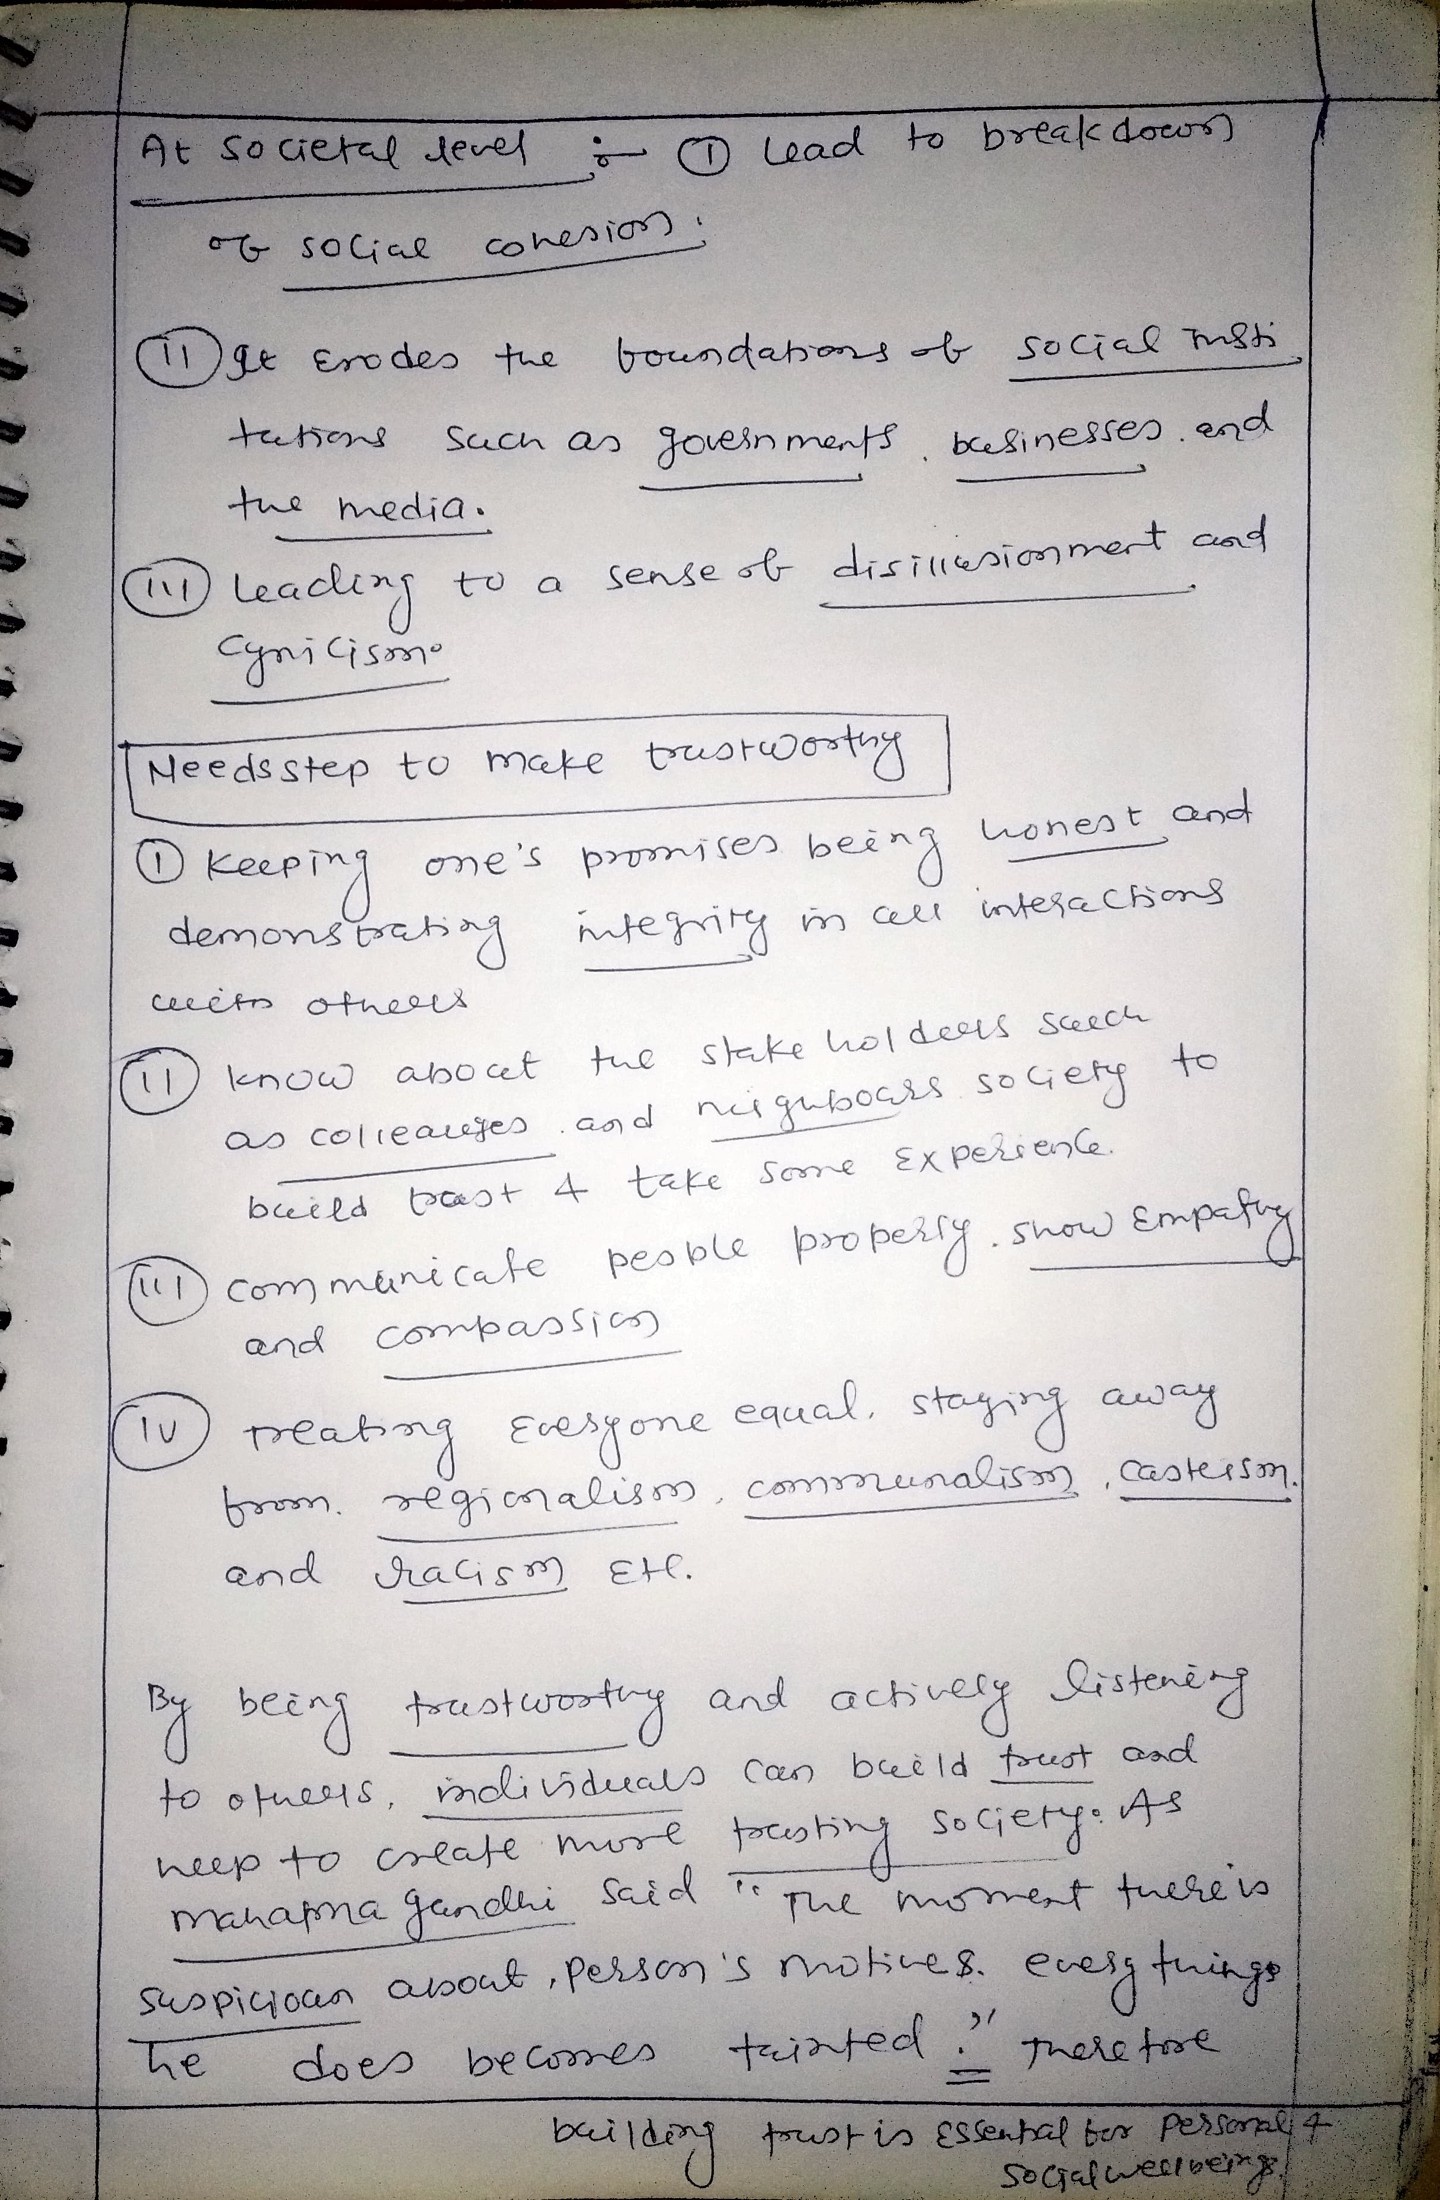 At societal level :- ① Lead to breakdown
of social cohesion.
(II) It Erodes the foundations of social insti
tutions such as governments, businesses, and
the media.
(III) Leading to a sense of disillusionment and
cynicism.
Needs step to make trustworthy
① Keeping one's promises being honest and
demonstrating integrity in all interactions
with others
(II) Know about the stake holders such
as colleauges, and neighbours society to
build trust & take some Experience.
(III) communicate people properly, show Empathy
and compassion
(IV) Treating Everyone equal, staying away
from, regionalism, communalism, casteism,
and racism Etc.
By being trustworthy and actively listening
to others, individuals can build trust and
heep to create more trusting society. As
Mahatma Gandhi said "The moment there is
suspicioun about, person's motives. every things
he does becomes tainted." Therefore
building trust is Essential for Personal &
social wellbeings.